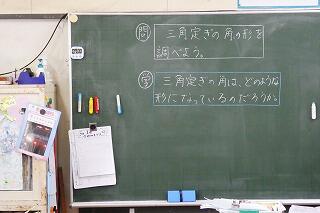 問 三角定ぎの角の形を
調べよう。
学 三角定ぎの角は、どのような
形になっているのだろうか。